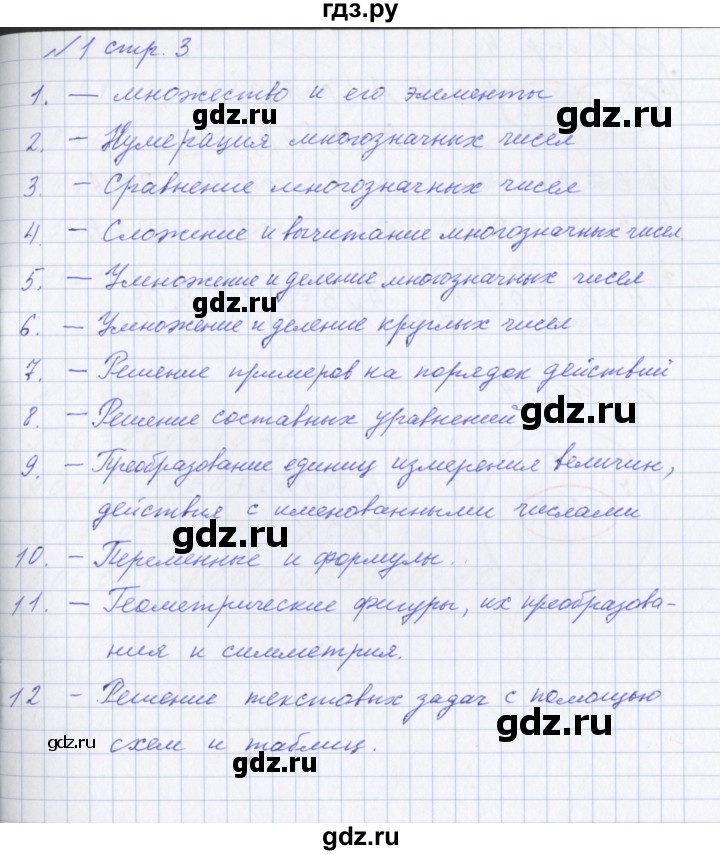 гдз.ру
№1 стр. 3
1. — множество и его элементы
gdz.ru
gdz.ru
2. — Нумерация многозначных чисел
3. — Сравнение многозначных чисел
4. — Сложение и вычитание многозначных чисел.
5. — Умножение и деление многозначных чисел
gdz.ru
6. — Умножение и деление круглых чисел
7. — Решение примеров на порядок действий
8. — Решение составных уравнений
gdz.ru
9. — Преобразование единиц измерения величин,
действия с именованными числами
gdz.ru
10. — Переменные и формулы..
11. — Геометрические фигуры, их преобразова-
ния и симметрия.
12 - Решение текстовых задач с помощью
gdz.ru
gdz.ru
схем и таблиц.
gdz.ru
gdz.ru